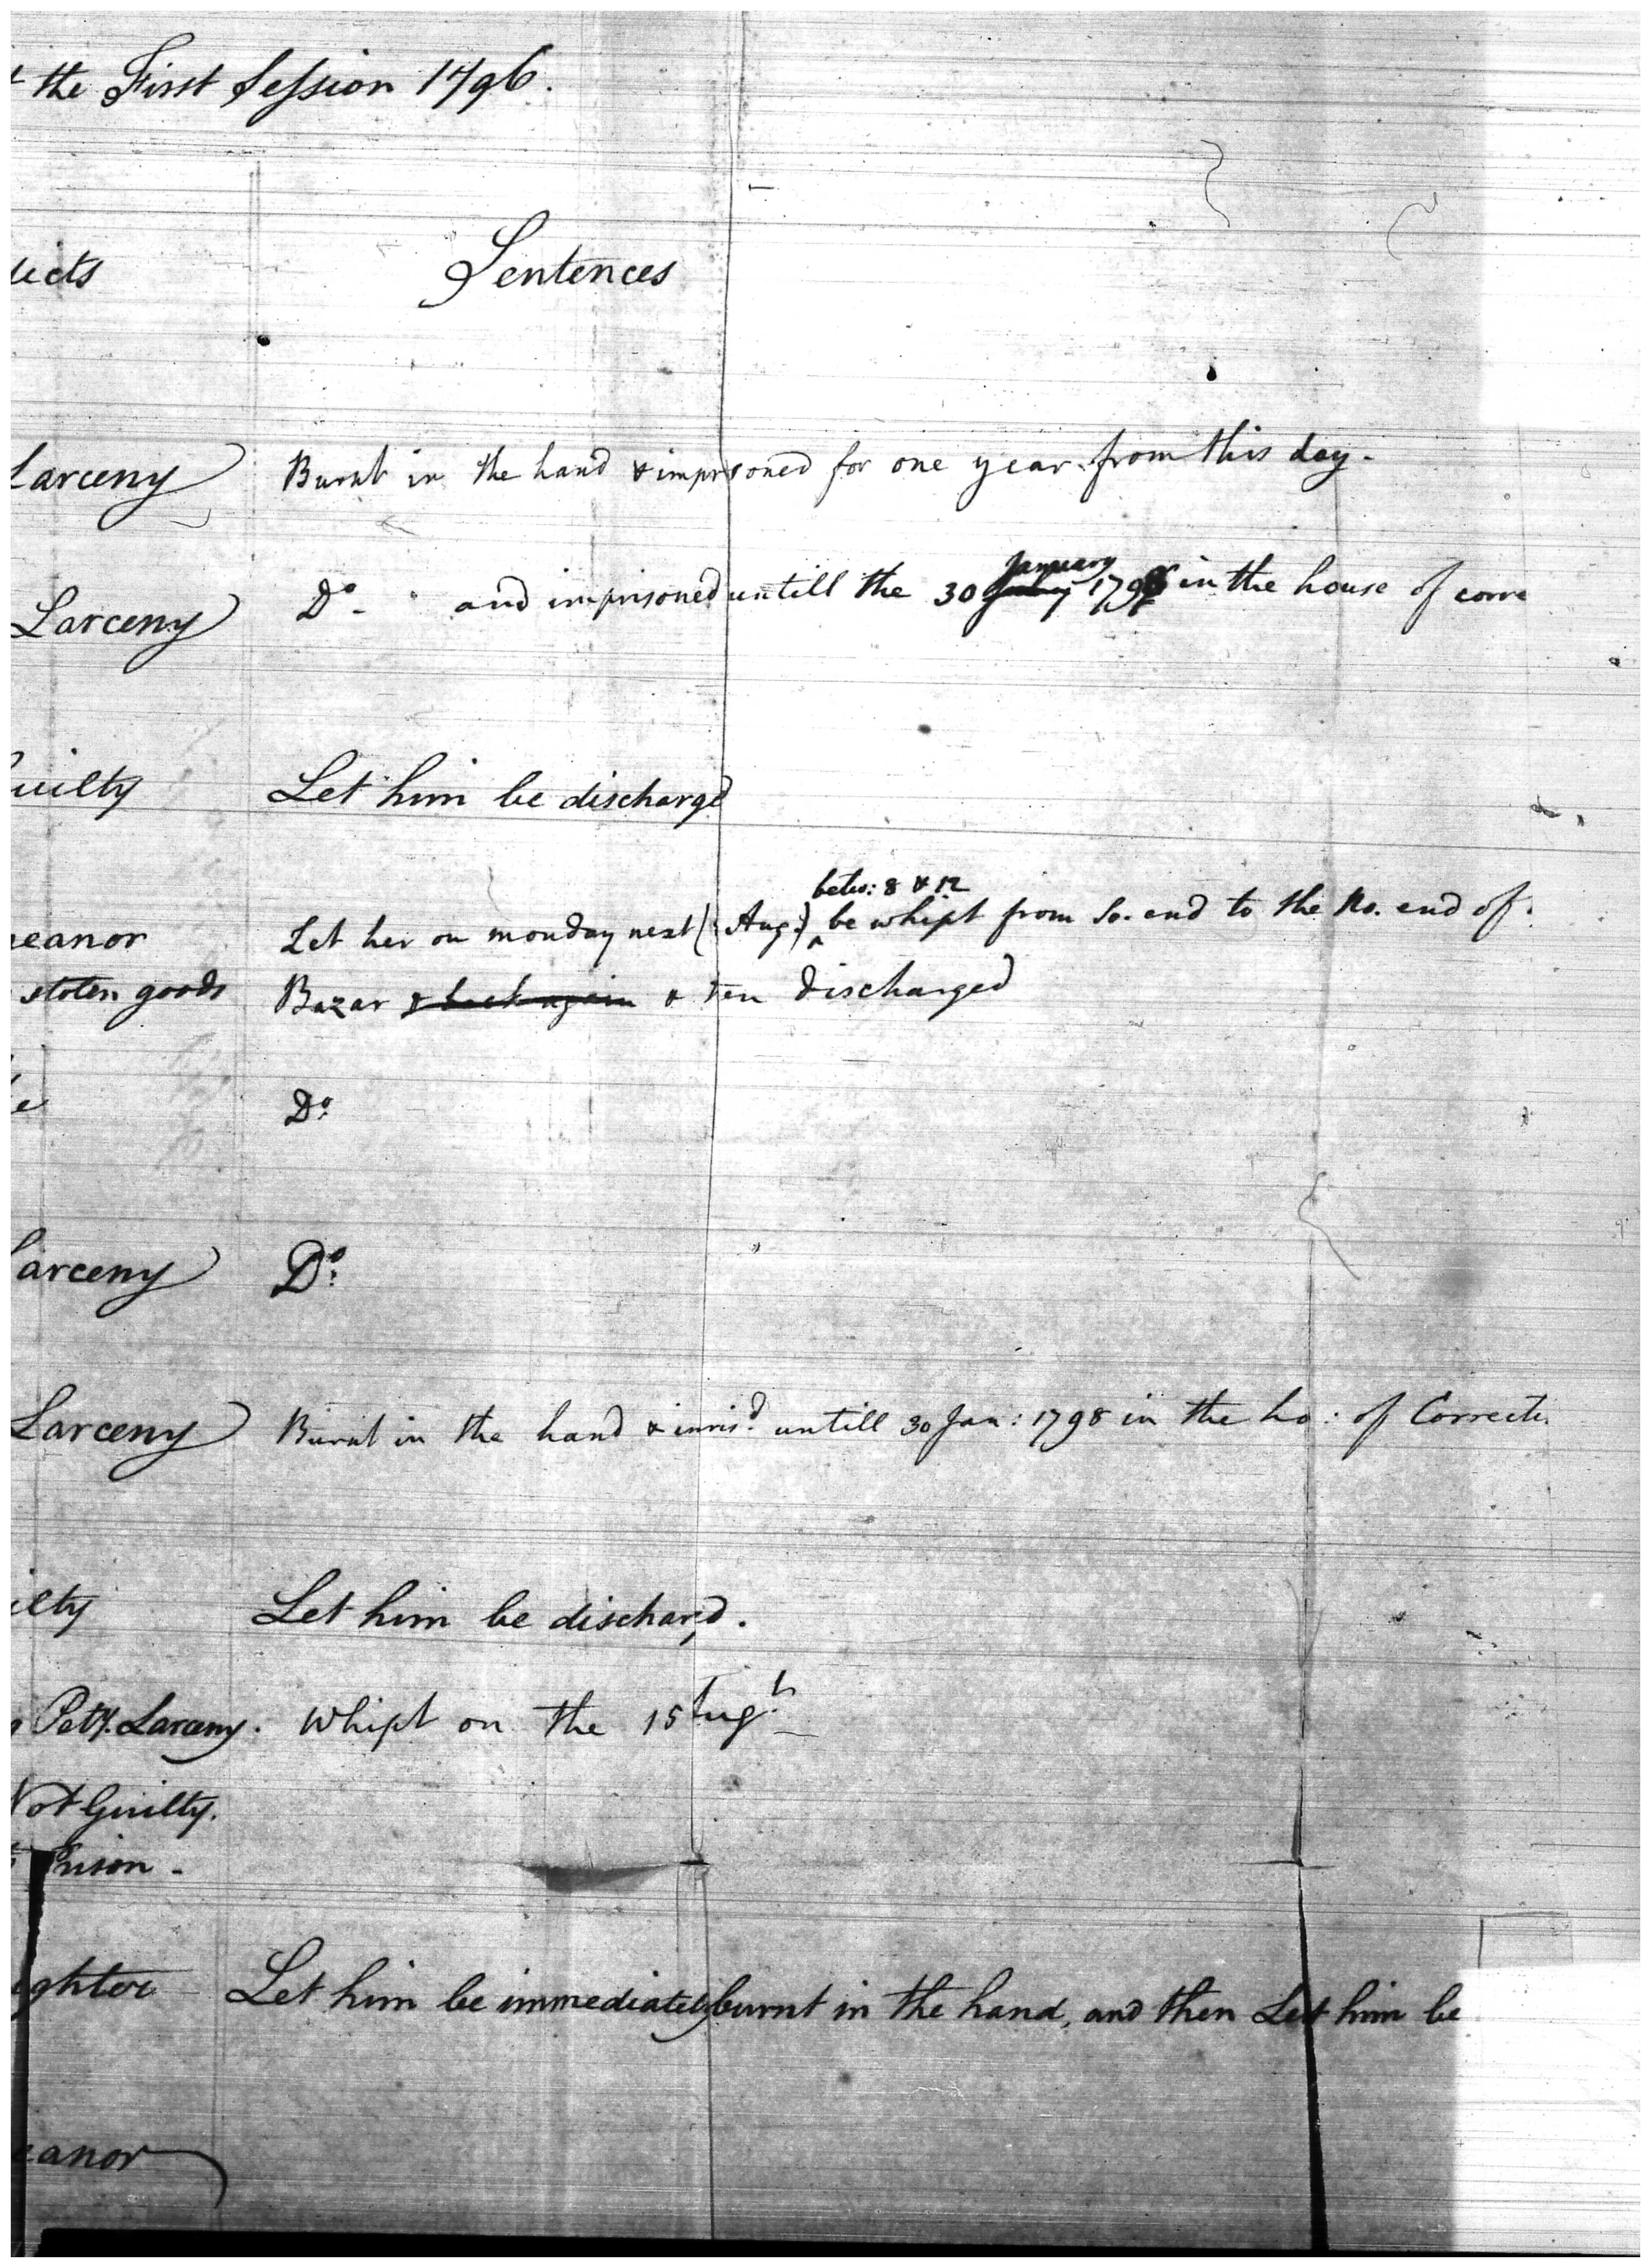 the First Session 1796.
icts Sentences
Larceny Burnt in the hand & imprisoned for one year from this day.
Larceny Do. and imprisoned untill the 30 January 1798 in the house of corre
uilty Let him be discharged
betw: 8 & 12
eanor Let her on monday next (: Aug:) be whipt from So. end to the No. end of
stolen goods Bazar & back again & ten discharged
e Do:
arceny Do:
Larceny Burnt in the hand & imris'd untill 30 Jan: 1798 in the ho: of Correcti
ilty Let him be discharg'd.
Pety. Larceny. Whipt on the 15 Augt
Not Guilty.
Prison -
ghter Let him be immediately burnt in the hand, and then Let him be
eanor